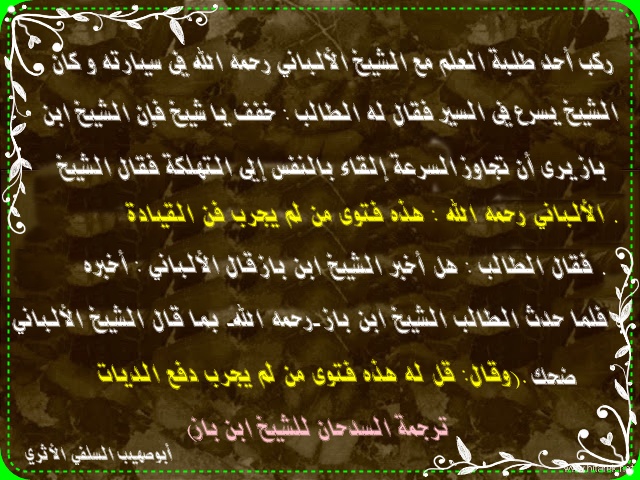 ركب أحد طلبة العلم مع الشيخ الألباني رحمه الله في سيارته و كان
الشيخ يسرع في السير فقال له الطالب : خفف يا شيخ فإن الشيخ ابن
باز يرى أن تجاوز السرعة إلقاء بالنفس إلى التهلكة فقال الشيخ
الألباني رحمه الله : هذه فتوى من لم يجرب فن القيادة .
فقال الطالب : هل أخبر الشيخ ابن باز قال الألباني : أخبره .
فلما حدث الطالب الشيخ ابن باز ـرحمه اللهـ بما قال الشيخ الألباني
ضحك .(وقال: قل له هذه فتوى من لم يجرب دفع الديات
ترجمة السدحان للشيخ ابن باز)
أبوصهيب السلفي الأثري